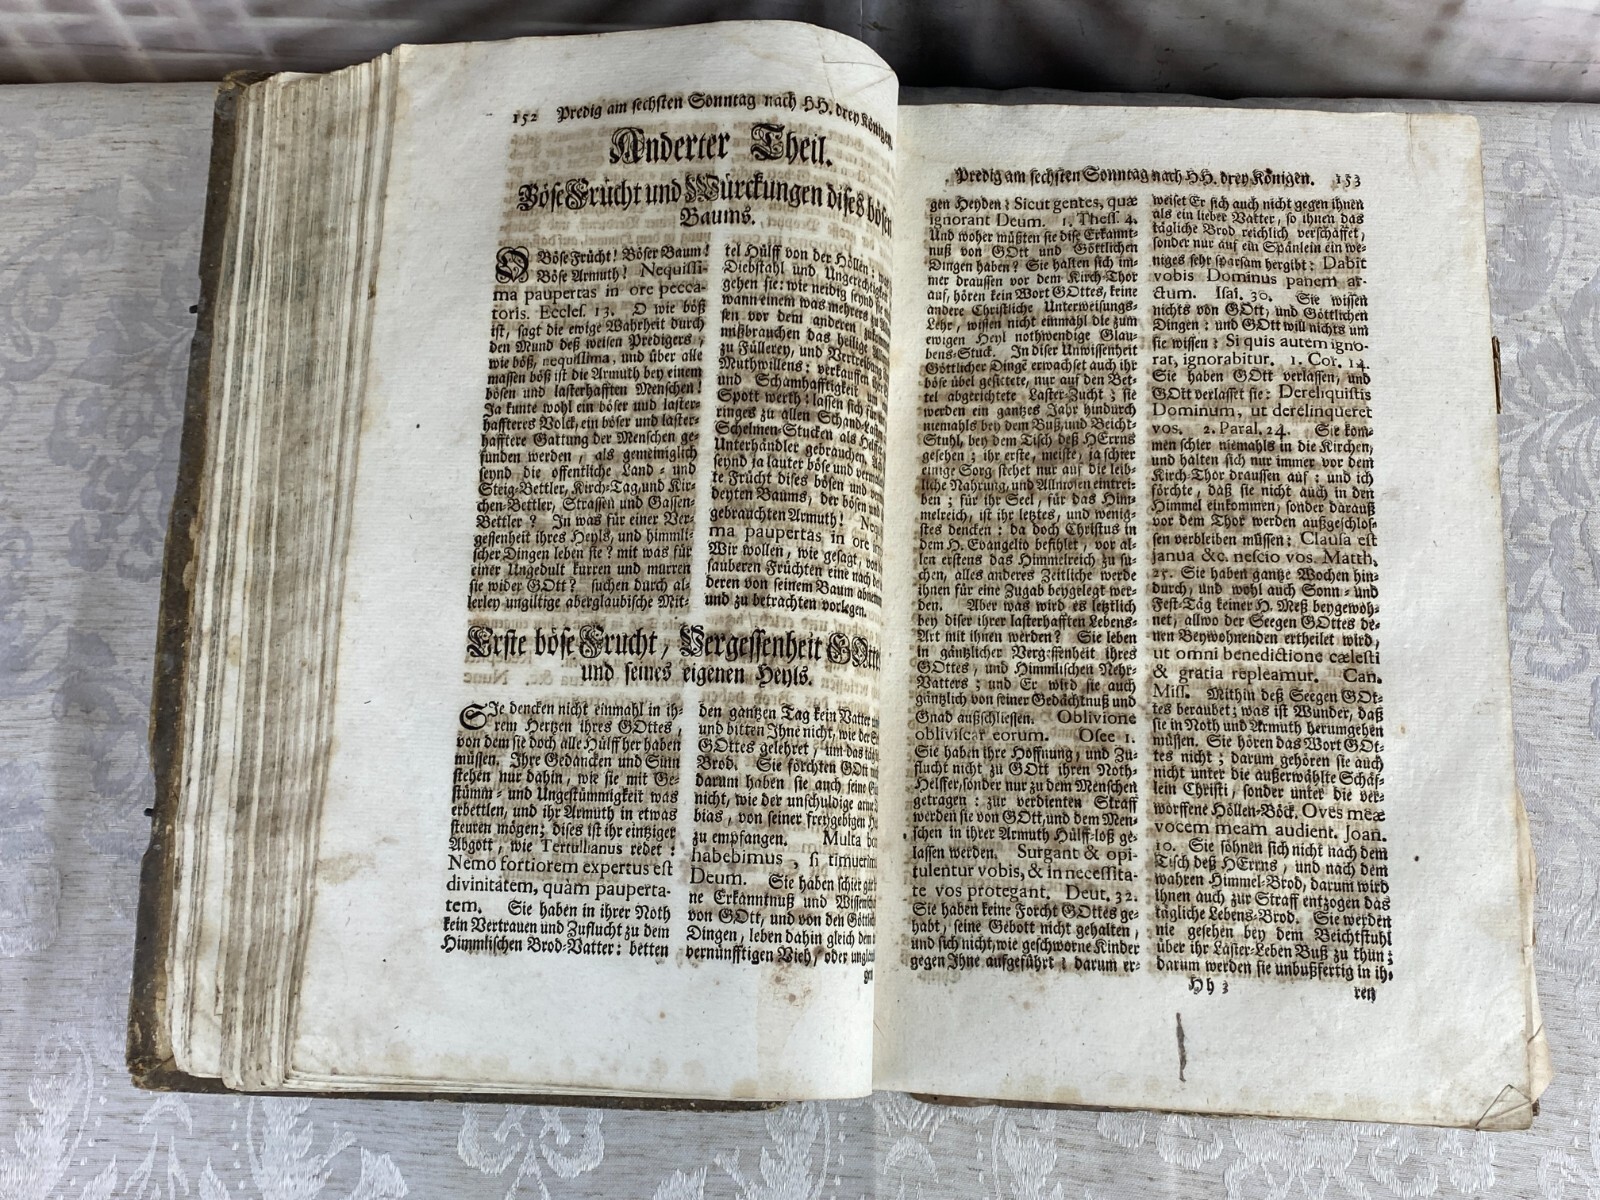 152 Predig am sechsten Sonntag nach HH. drey Königen.
Anderter Theil.
Böse Frücht und Würckungen dises bösen
Baums.
O Böse Frücht! Böser Baum!
Böse Armuth! Nequissi-
ma paupertas in ore pecca-
toris. Eccles. 13. O wie böß
ist, sagt die ewige Wahrheit durch
den Mund deß weisen Predigers,
wie böß, nequissima, und über alle
massen böß ist die Armuth bey einem
bösen und lasterhafften Menschen!
Ja kunte wohl ein böser und laster-
haffteres Volck, ein böser und laster-
hafftere Gattung der Menschen ge-
funden werden, als gemeiniglich
seynd die offentliche Land- und
Steig-Bettler, Kirch-Tag, und Kir-
chen-Bettler, Strassen und Gassen-
Bettler? In was für einer Ver-
gessenheit ihres Heyls, und himmli-
scher Dingen leben sie? mit was für
einer Ungedult kurren und murren
sie wider GOtt? suchen durch al-
lerley ungiltige aberglaubische Mit-
tel Hülff von der Höllen:
Diebstahl und Ungerechtigkeit
gehen sie: wie neidig seynd sie
wann einem was mehrers zu
sen vor dem anderen
mißbrauchen das heilige
zu Füllerey, und
Muthwillens: verkauffen
und Schamhafftigkeit um
Spott werth: lassen sich für
ringes zu allen Schand-Laster
Schelmen-Stucken als Helffer
Unterhändler gebrauchen.
seynd ja lauter böse und
te Frücht dises bösen und
deyten Baums, der bösen und
gebrauchten Armuth!
ma paupertas in ore
Wir wollen, wie gesagt, von
sauberen Früchten eine nach der
deren von seinem Baum
und zu betrachten vorlegen.
Erste böse Frucht, Vergessenheit GOttes
und seines eigenen Heyls.
SIe dencken nicht einmahl in ih-
rem Hertzen ihres GOttes,
von dem sie doch alle Hülff her haben
müssen. Ihre Gedancken und Sinn
stehen nur dahin, wie sie mit Ge-
stümm- und Ungestümmigkeit was
erbettlen, und ihr Armuth in etwas
steuren mögen; dises ist ihr eintziger
Abgott, wie Tertullianus redet:
Nemo fortiorem expertus est
divinitatem, quàm pauperta-
tem. Sie haben in ihrer Noth
kein Vertrauen und Zuflucht zu dem
Himmlischen Brod-Vatter: betten
den gantzen Tag kein Vatter
und bitten Ihne nicht, wie der
GOttes gelehret, um das
Brod. Sie förchten GOtt
darum haben sie auch seine
nicht, wie der unschuldige arme
bias, von seiner freygebigen
zu empfangen. Multa
habebimus, si timuerimus
Deum. Sie haben schier
ne Erkanntnuß und Wissenschafft
von GOtt, und von den Göttlichen
Dingen, leben dahin gleich dem
vernünfftigen Vieh, oder
gen
Predig am sechsten Sonntag nach HH. drey Königen. 153
gen Heyden: Sicut gentes, quæ
ignorant Deum. 1. Thess. 4.
Und woher müßten sie dise Erkannt-
nuß von GOtt und Göttlichen
Dingen haben? Sie halten sich im-
mer draussen vor dem Kirch-Thor
auf, hören kein Wort GOttes, keine
andere Christliche Unterweisungs-
Lehr, wissen nicht einmahl die zum
ewigen Heyl nothwendige Glau-
bens-Stuck. In diser Unwissenheit
Göttlicher Dinge erwachset auch ihr
böse übel gesittete, nur auf den Bet-
tel abgerichtete Laster-Zucht; sie
werden ein gantzes Jahr hindurch
niemahls bey dem Buß, und Beicht-
Stuhl, bey dem Tisch deß HErrns
gesehen; ihr erste, meiste, ja schier
einige Sorg stehet nur auf die leib-
liche Nahrung, und Allmosen eintrei-
ben; für ihr Seel, für das Him-
melreich, ist ihr letztes, und wenig-
stes dencken: da doch Christus in
dem H. Evangelio befihlet, vor al-
len erstens das Himmelreich zu su-
chen, alles anderes Zeitliche werde
ihnen für eine Zugab beygelegt wer-
den. Aber was wird es letztlich
bey diser ihrer lasterhafften Lebens-
Art mit ihnen werden? Sie leben
in gäntzlicher Vergessenheit ihres
GOttes, und Himmlischen Nehr-
Vatters; und Er wird sie auch
gäntzlich von seiner Gedächtnuß und
Gnad außschliessen. Oblivione
obliviscar eorum. Osee 1.
Sie haben ihre Hoffnung, und Zu-
flucht nicht zu GOtt ihren Noth-
Helffer, sonder nur zu dem Menschen
getragen: zur verdienten Straff
werden sie von GOtt, und dem Men-
schen in ihrer Armuth Hülff-loß ge-
lassen werden. Surgant & opi-
tulentur vobis, & in necessita-
te vos protegant. Deut. 32.
Sie haben keine Forcht GOttes ge-
habt, seine Gebott nicht gehalten,
und sich nicht, wie geschworne Kinder
gegen Ihne aufgeführt: darum er-
weiset Er sich auch nicht gegen ihnen
als ein lieber Vatter, so ihnen das
tägliche Brod reichlich verschaffet,
sonder nur auf ein Spänlein ein we-
niges sehr sparsam hergibt: Dabit
vobis Dominus panem ar-
ctum. Isai. 30. Sie wissen
nichts von GOtt, und Göttlichen
Dingen: und GOtt will nichts um
sie wissen: Si quis autem igno-
rat, ignorabitur. 1. Cor. 14.
Sie haben GOtt verlassen, und
GOtt verlasset sie: Dereliquistis
Dominum, ut derelinqueret
vos. 2. Paral. 24. Sie kom-
men schier niemahls in die Kirchen,
und halten sich nur immer vor dem
Kirch-Thor draussen auf: und ich
förchte, daß sie nicht auch in den
Himmel einkommen, sonder darauß
vor dem Thor werden außgeschlos-
sen verbleiben müssen: Clausa est
janua &c. nescio vos. Matth.
25. Sie haben gantze Wochen hin-
durch, und wohl auch Sonn- und
Fest-Täg keiner H. Meß beygewoh-
net, allwo der Seegen GOttes de-
nen Beywohnenden ertheilet wird,
ut omni benedictione cælesti
& gratia repleamur. Can.
Miss. Mithin deß Seegen GOt-
tes beraubet; was ist Wunder, daß
sie in Noth und Armuth herumgehen
müssen. Sie hören das Wort GOt-
tes nicht; darum gehören sie auch
nicht unter die außerwählte Schäf-
lein Christi, sonder unter die ver-
worffene Höllen-Böck. Oves meæ
vocem meam audient. Joan.
10. Sie söhnen sich nicht nach dem
Tisch deß HErrns, und nach dem
wahren Himmel-Brod, darum wird
ihnen auch zur Straff entzogen das
tägliche Lebens-Brod. Sie werden
nie gesehen bey dem Beichtstuhl
über ihr Laster-Leben Buß zu thun;
darum werden sie unbußfertig in ih-
Hh 3
ren